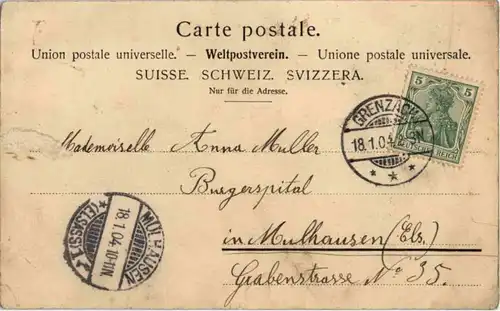 Carte postale.
Union postale universelle. – Weltpostverein. – Unione postale universale.
SUISSE. SCHWEIZ. SVIZZERA.
Nur für die Adresse.
5 5
DEUTSCHES REICH
GRENZACH
18.1.04
Mademoiselle Anna Muller
Burgerspital
in Mulhausen (Els.)
Grabenstrasse No 35.
MÜLHAUSEN
18.1.04.10-11N
*(ELSASS) 1